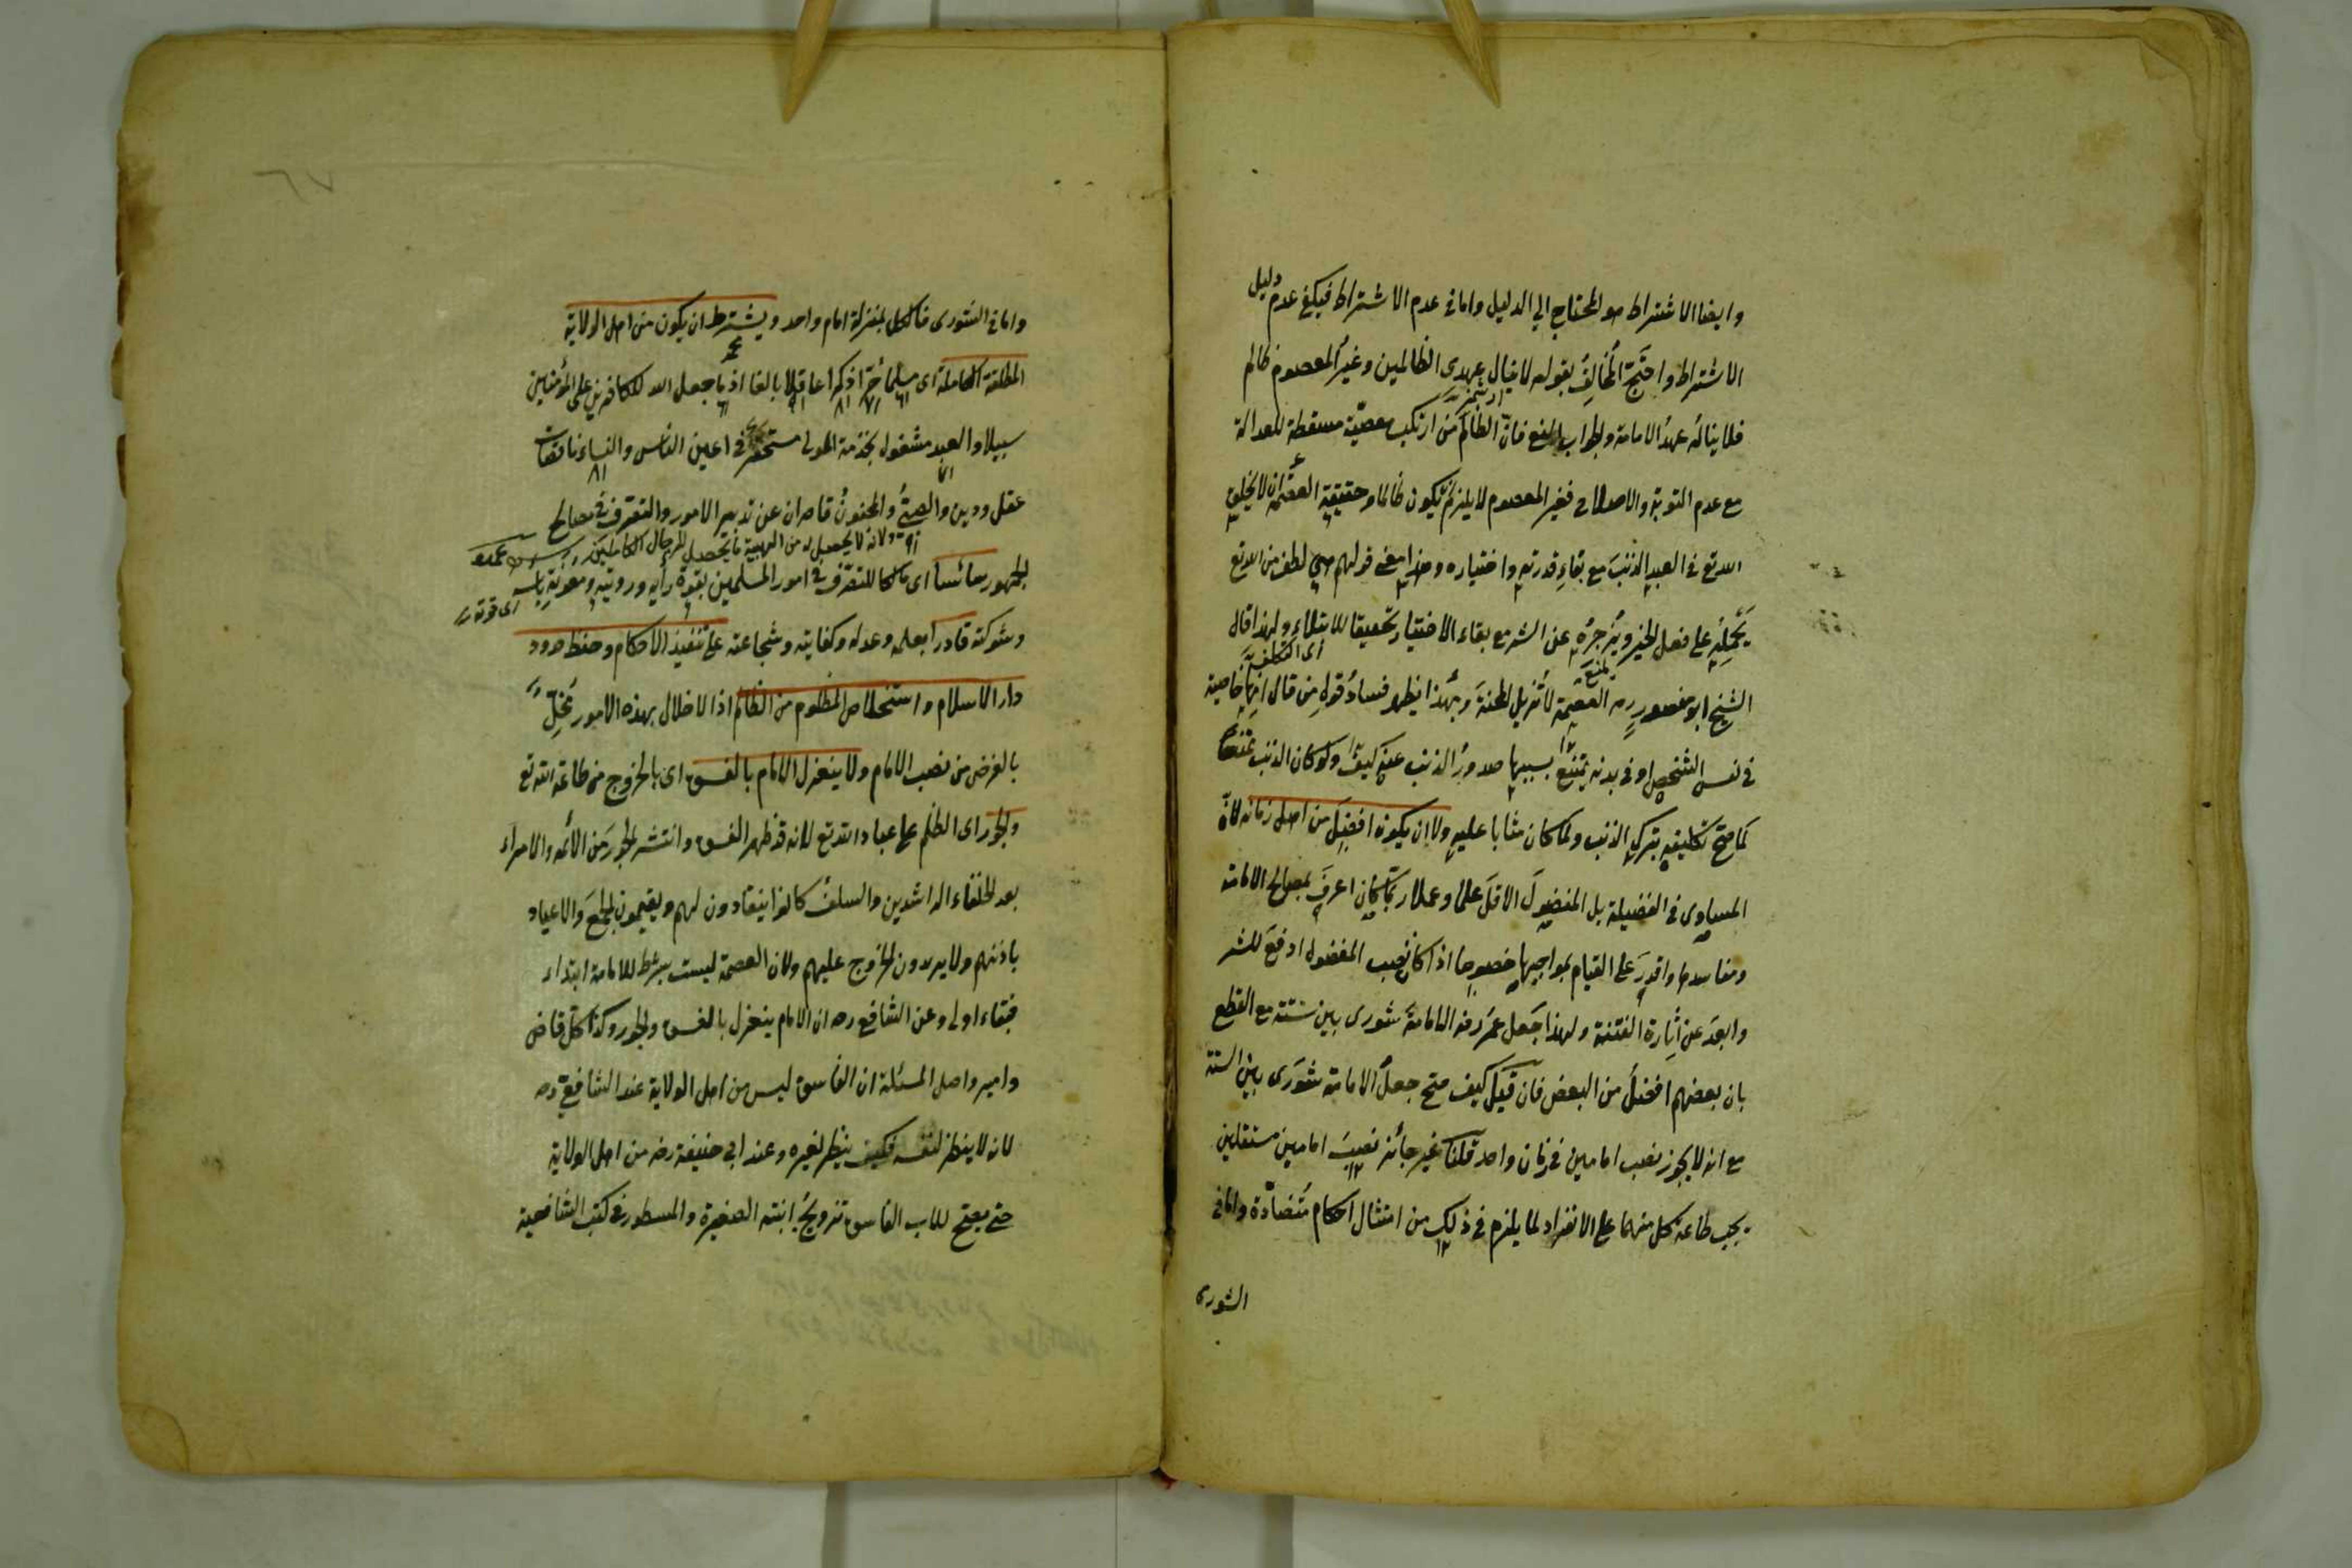 وايضا الاشتراط هو المحتاج الي الدليل واما في عدم الاشتراط فيكفي عدم دليل
الاشتراط واحتج المخالف بقوله لا ينال عهدي الظالمين وغير المعصوم ظالم
فلا يناله عهد الامامة والجواب المنع فان الظالم من ارتكب معصية مسقطة للعدالة
مع عدم التوبة والاصلاح فغير المعصوم لا يلزم ان يكون ظالما وحقيقة العصمة ان لا يخلق
الله تع في العبد الذنب مع بقاء قدرته واختياره وهذا معنى قولهم هي لطف من الله تع
يحمله على فعل الخير ويزجره عن الشر مع بقاء الاختيار تحقيقا للابتلاء ولهذا قال
اى التكليف
الشيخ ابو منصور ره العصمة لا تزيل المحنة وبهذا يظهر فساد قول من قال انها خاصية
في نفس الشخص او في بدنه يمتنع بسببها صدور الذنب عنه كيف ولو كان الذنب ممتنعا
لما صح تكليفه بترك الذنب ولما كان مثابا عليه ولا ان يكون افضل من اهل زمانه لان
المساوي في الفضيلة بل المفضول الاقل علما وعملا ربما كان اعرف بمصالح الامامة
ومفاسدها واقدر على القيام بمواجبها خصوصا اذا كان نصب المفضول ادفع للشر
وابعد عن اثارة الفتنة ولهذا جعل عمر رضه الامامة شورى بين ستة مع القطع
بان بعضهم افضل من البعض فان قيل كيف صح جعل الامامة شورى بين الستة
مع انه لا يجوز نصب امامين في زمان واحد قلنا غير جائز نصب امامين مستقلين
يجب طاعة كل منهما على الانفراد لما يلزم في ذلك من امتثال احكام متضادة واما في
الشورى
٦٧
واما في الشورى فالكل بمنزلة امام واحد ويشترط ان يكون من اهل الولاية
المطلقة الكاملة اى مسلما حرا ذكرا عاقلا بالغا اذ ما جعل الله للكافرين على المؤمنين
سبيلا والعبد مشغول بخدمة المولى مستحقر في اعين الناس والنساء ناقصات
عقل ودين والصبي والمجنون قاصران عن تدبير الامور والتصرف في مصالح
ولانه لا يحصل له من الهيبة ما يحصل للرجال الكاملين
الجمهور سائسا اى مالكا للتصرف في امور المسلمين بقوة رأيه ورويته ومعونة بأسه
اى قوته
وشوكته قادرا بعلمه وعدله وكفايته وشجاعته على تنفيذ الاحكام وحفظ حدود
دار الاسلام واستخلاص المظلوم من الظالم اذ الاخلال بهذه الامور مخل
بالغرض من نصب الامام ولا ينعزل الامام بالفسق اى بالخروج من طاعة الله تع
والجور اى الظلم على عباد الله تع لانه قد ظهر الفسق وانتشر الجور من الائمه والامراء
بعد الخلفاء الراشدين والسلف كانوا ينقادون لهم ويقيمون الجمع والاعياد
باذنهم ولا يرون الخروج عليهم ولان العصمة ليست بشرط للامامة ابتداء
فبقاء اولى وعن الشافعي ره ان الامام ينعزل بالفسق والجور وكذا كل قاض
وامير واصل المسئلة ان الفاسق ليس من اهل الولاية عند الشافعي ره
لانه لا ينظر لنفسه فكيف ينظر لغيره وعند ابي حنيفة رضه من اهل الولاية
حتى يصح للاب الفاسق تزويج ابنته الصغيرة والمسطور في كتب الشافعية